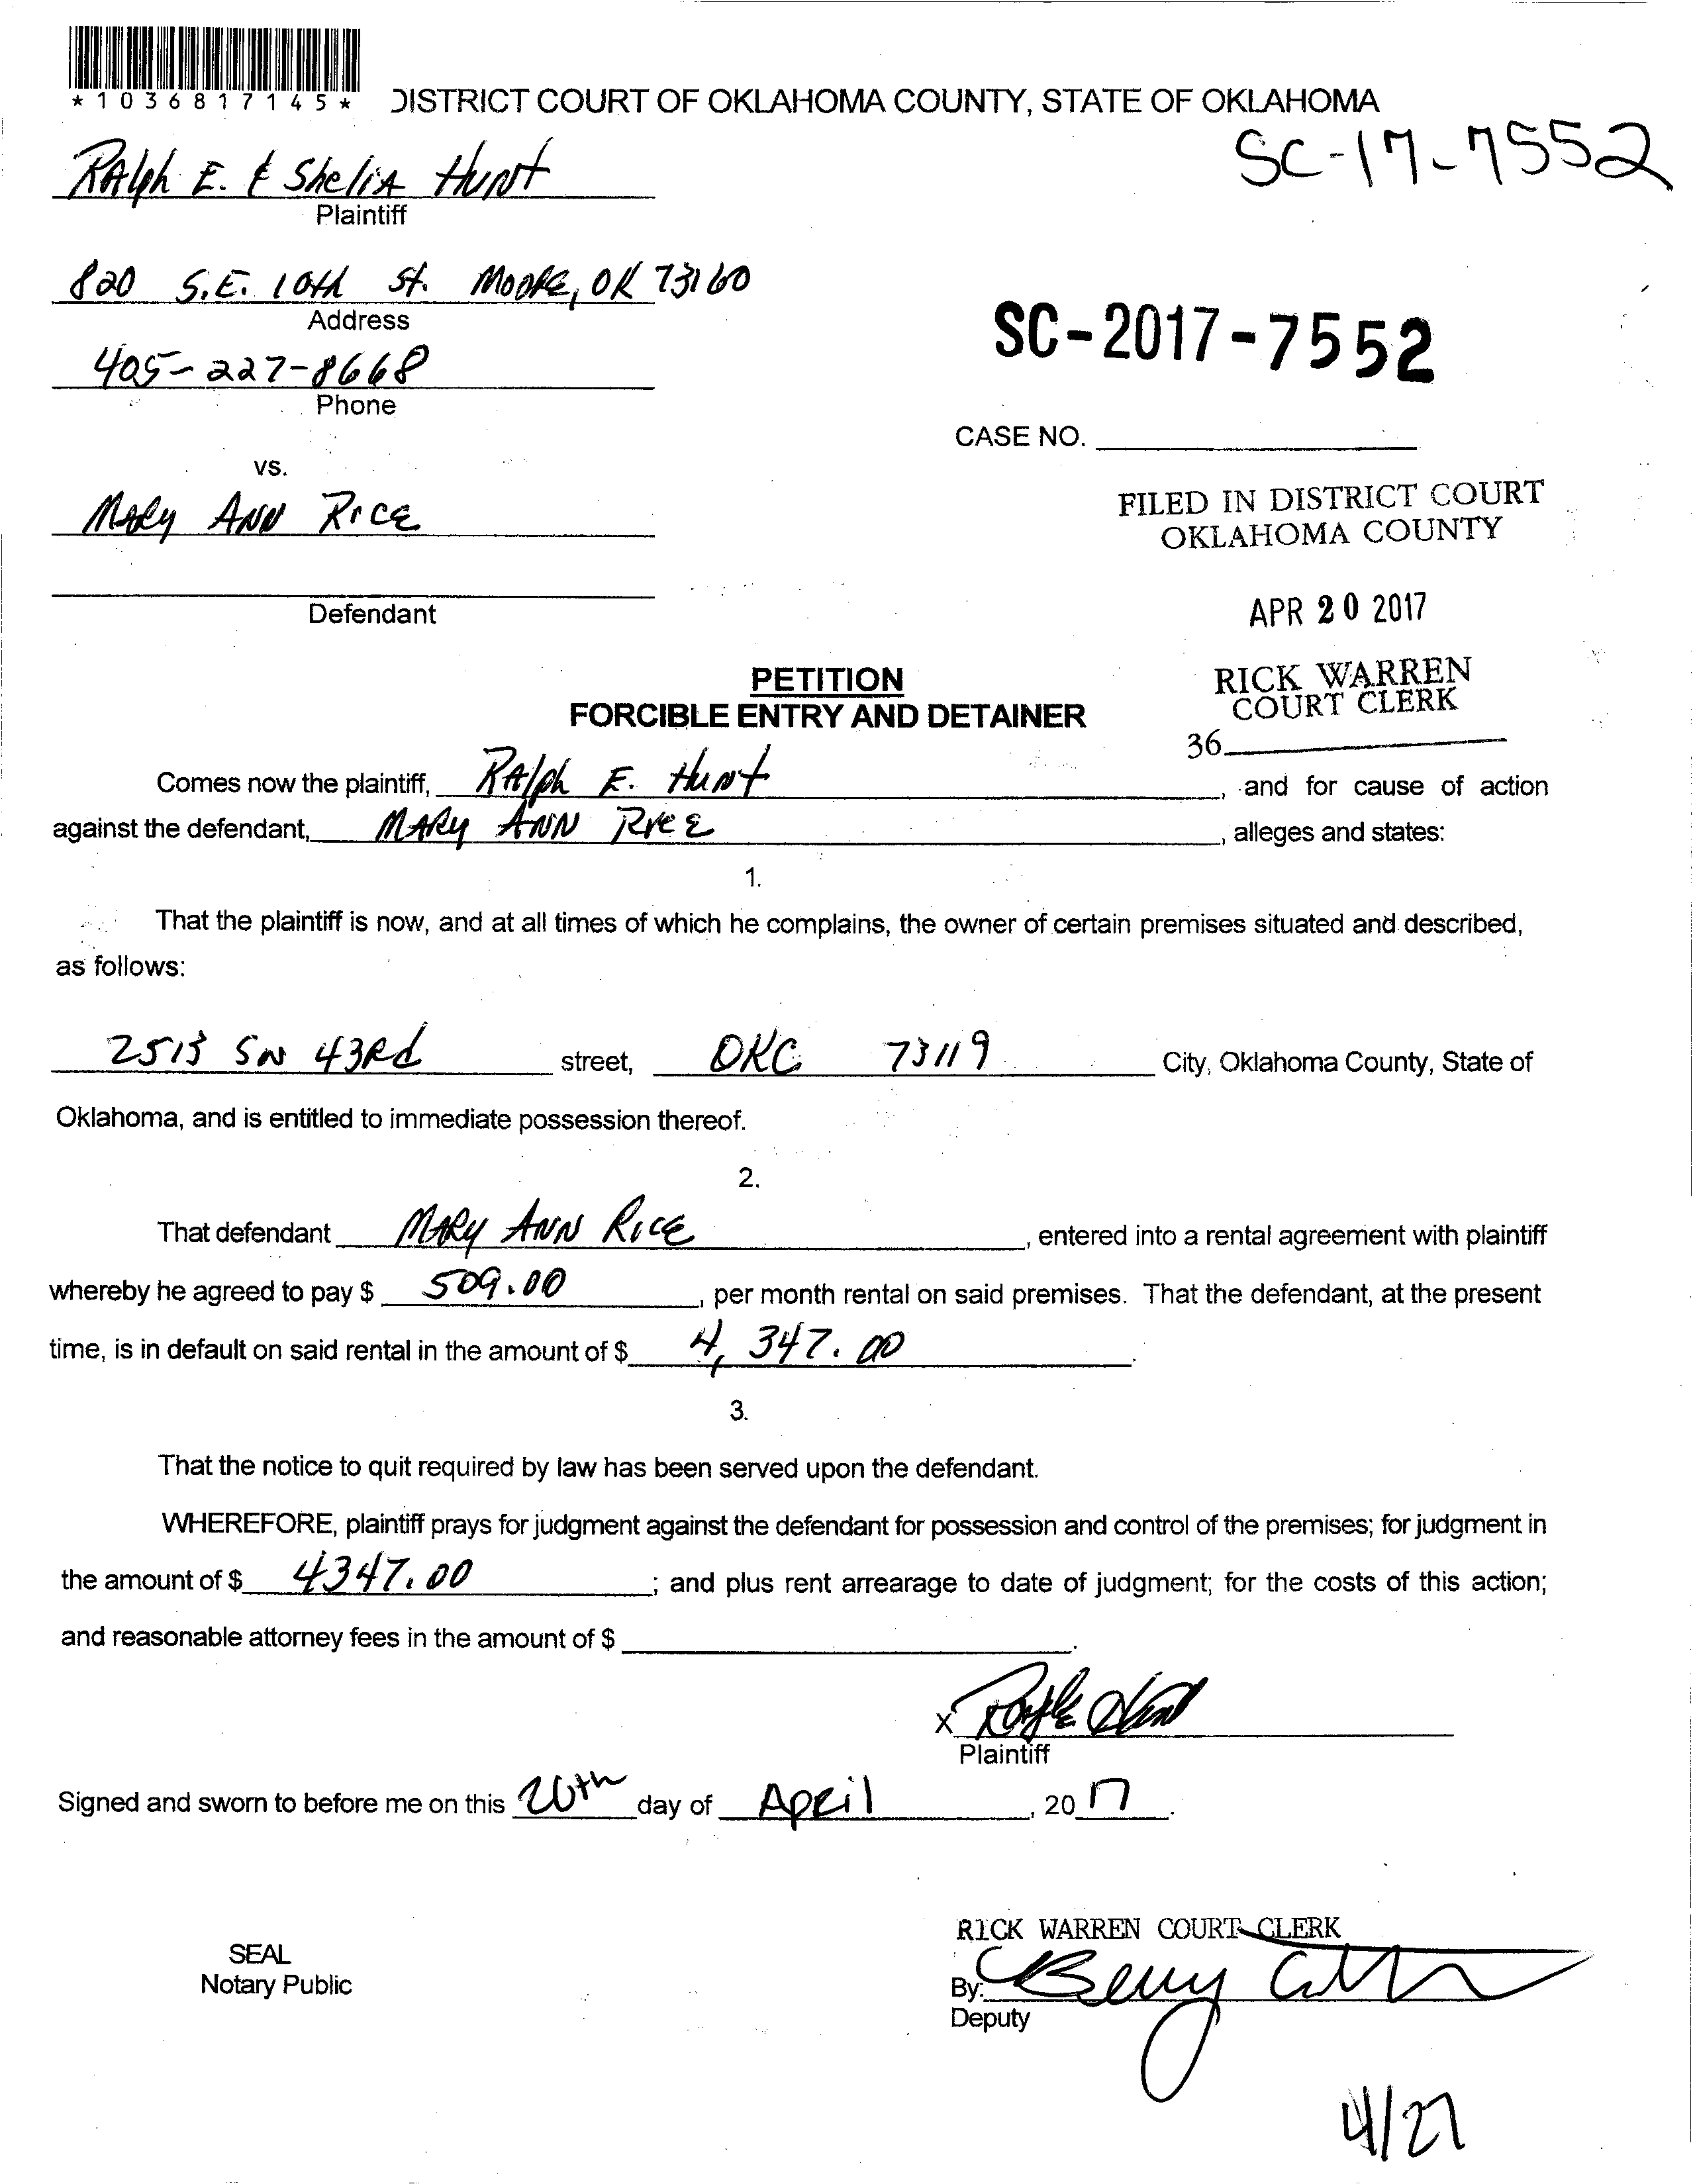 *1036817145*
DISTRICT COURT OF OKLAHOMA COUNTY, STATE OF OKLAHOMA
SC-17-7552
RAlph E. & SheliA Hunt
Plaintiff
820 S.E. 10th St. Moore, OK 73160
Address
SC-2017-7552
405-227-8668
Phone
CASE NO.
vs.
MARy ANN RicE
FILED IN DISTRICT COURT
OKLAHOMA COUNTY
Defendant
APR 20 2017
PETITION
FORCIBLE ENTRY AND DETAINER
RICK WARREN
COURT CLERK
36
Comes now the plaintiff, RAlph E. Hunt, and for cause of action
against the defendant, MARy ANN RicE, alleges and states:
1.
That the plaintiff is now, and at all times of which he complains, the owner of certain premises situated and described,
as follows:
2513 SW 43Rd street, OKC 73119 City, Oklahoma County, State of
Oklahoma, and is entitled to immediate possession thereof.
2.
That defendant MARy ANN RicE, entered into a rental agreement with plaintiff
whereby he agreed to pay $ 509.00, per month rental on said premises. That the defendant, at the present
time, is in default on said rental in the amount of $ 4,347.00.
3.
That the notice to quit required by law has been served upon the defendant.
WHEREFORE, plaintiff prays for judgment against the defendant for possession and control of the premises; for judgment in
the amount of $ 4347.00; and plus rent arrearage to date of judgment; for the costs of this action;
and reasonable attorney fees in the amount of $ .
X
Plaintiff
Signed and sworn to before me on this 20th day of April, 2017.
RICK WARREN COURT CLERK
SEAL
Notary Public
By:
Deputy
4/27